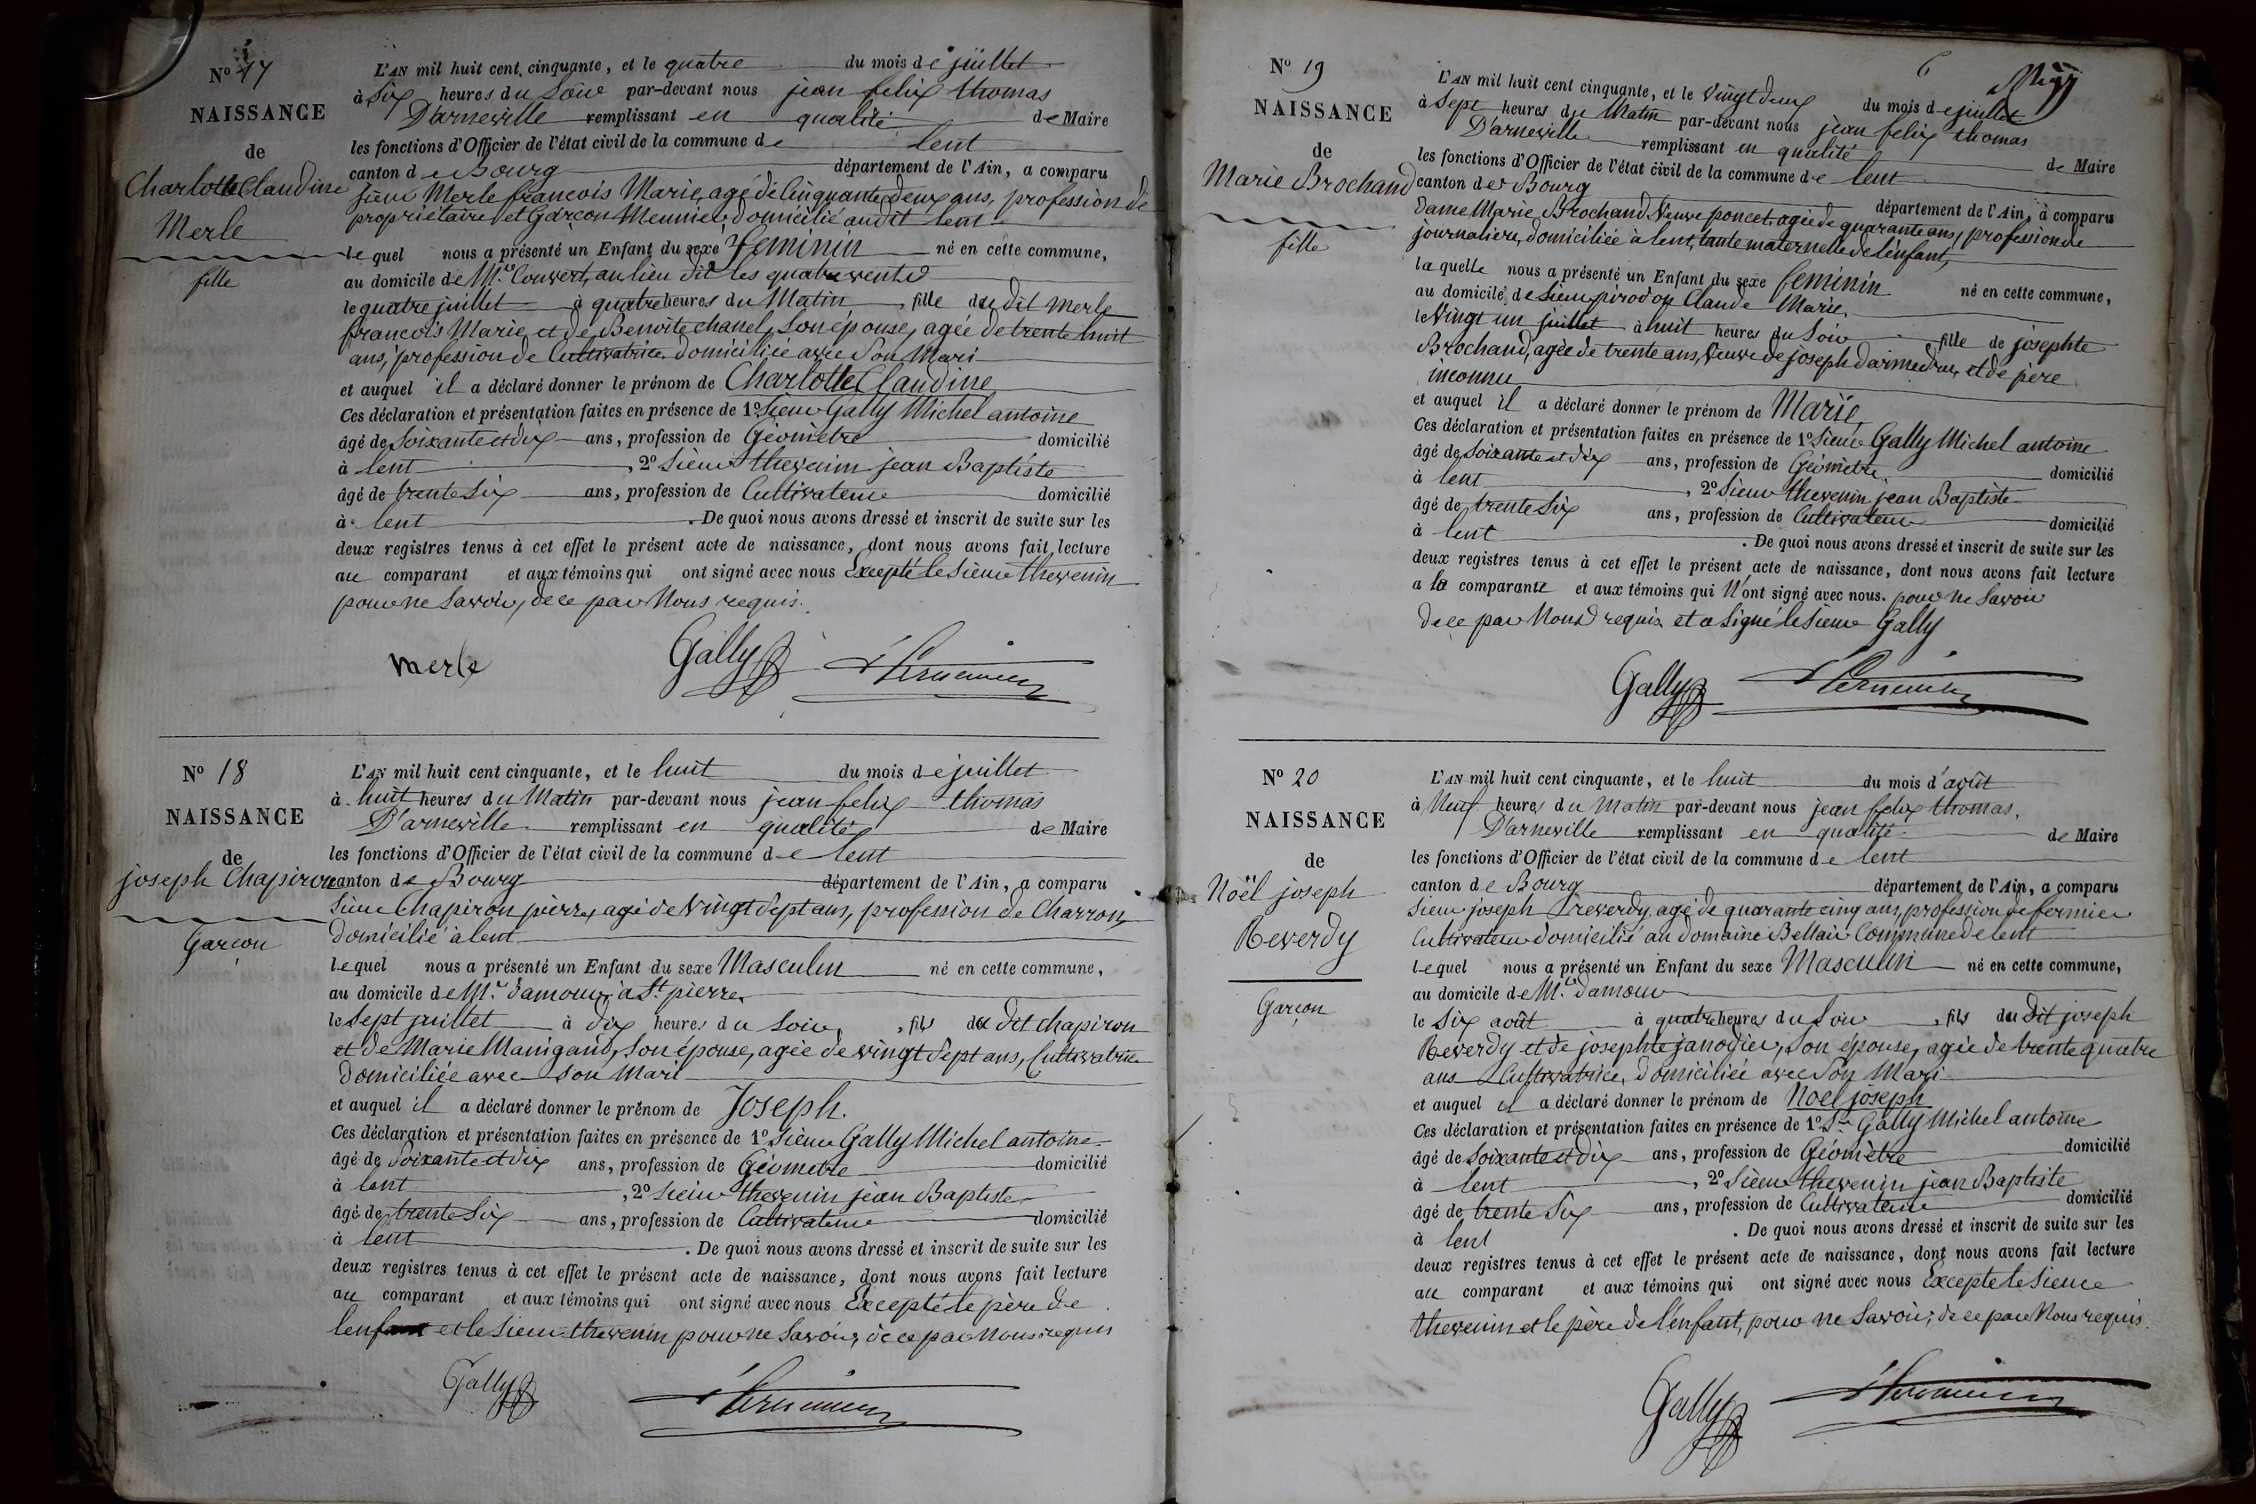 No 17
NAISSANCE
de
Charlotte Claudine
Merle
fille
L'AN mil huit cent cinquante, et le quatre du mois de juillet
à Six heures du Soir par-devant nous jean felix thomas
D'arneville remplissant en qualité de Maire
les fonctions d'Officier de l'état civil de la commune de lent
canton de Bourg département de l'Ain, a comparu
sieur Merle francois Marie, agé de Cinquante deux ans, profession de
propriétaire et Garcon Meunier domicilié audit lent
lequel nous a présenté un Enfant du sexe feminin né en cette commune,
au domicile de Mr. Convert, au lieu dit les quatre vents
le quatre juillet à quatre heures du Matin, fille du dit Merle
francois Marie et de Benoite chanel, Son épouse, agée de trente huit
ans, profession de Cultivatrice domiciliée avec Son Mari
et auquel il a déclaré donner le prénom de Charlotte Claudine
Ces déclaration et présentation faites en présence de 1o Sieur Gally Michel antoine
âgé de Soixante et dix ans, profession de Géomètre domicilié
à lent, 2o Sieur thevenin jean Baptiste
âgé de trente Six ans, profession de Cultivateur domicilié
à lent. De quoi nous avons dressé et inscrit de suite sur les
deux registres tenus à cet effet le présent acte de naissance, dont nous avons fait lecture
au comparant et aux témoins qui ont signé avec nous Excepté le Sieur thevenin
pour ne Savoir, de ce par Nous requis.
merle Gally
No 18
NAISSANCE
de
joseph Chapiron
Garçon
L'AN mil huit cent cinquante, et le huit du mois de juillet
à huit heures du Matin par-devant nous jean felix thomas
D'arneville remplissant en qualité de Maire
les fonctions d'Officier de l'état civil de la commune de lent
canton de Bourg département de l'Ain, a comparu
Sieur Chapiron pierre, agé de Vingt Sept ans, profession de Charron,
domicilié à lent
lequel nous a présenté un Enfant du sexe Masculin né en cette commune,
au domicile de Mr. damour, à St. pierre
le Sept juillet à dix heures du Soir, fils du dit chapiron
et de Marie Manigand, Son épouse, agée de vingt Sept ans, Cultivatrice
domiciliée avec Son Mari
et auquel il a déclaré donner le prénom de Joseph.
Ces déclaration et présentation faites en présence de 1o Sieur Gally Michel antoine
âgé de Soixante et dix ans, profession de Géomètre domicilié
à lent, 2o Sieur thevenin jean Baptiste
âgé de trente Six ans, profession de Cultivateur domicilié
à lent. De quoi nous avons dressé et inscrit de suite sur les
deux registres tenus à cet effet le présent acte de naissance, dont nous avons fait lecture
au comparant et aux témoins qui ont signé avec nous Excepté le père de
lenfant et le Sieur thevenin pour ne Savoir, de ce par Nous requis
Gally
6
No 19
NAISSANCE
de
Marie Brochand
fille
L'AN mil huit cent cinquante, et le Vingt deux du mois de juillet
à Sept heures du Matin par-devant nous jean felix thomas
D'arneville remplissant en qualité de Maire
les fonctions d'Officier de l'état civil de la commune de lent
canton de Bourg département de l'Ain, à comparu
dame Marie Brochand Veuve poncet agée de quarante ans, profession de
journaliere, domiciliée à lent, tante maternelle de l'enfant,
la quelle nous a présenté un Enfant du sexe feminin né en cette commune,
au domicile de Sieur pirodon Claude Marie,
le Vingt un juillet à huit heures du Soir fille de josephte
Brochand, agée de trente ans, Veuve de joseph et de père
inconnu
et auquel il a déclaré donner le prénom de Marie,
Ces déclaration et présentation faites en présence de 1o Sieur Gally Michel antoine
âgé de Soixante et dix ans, profession de Géomètre domicilié
à lent, 2o Sieur thevenin jean Baptiste
âgé de trente Six ans, profession de Cultivateur domicilié
à lent. De quoi nous avons dressé et inscrit de suite sur les
deux registres tenus à cet effet le présent acte de naissance, dont nous avons fait lecture
a la comparante et aux témoins qui N'ont signé avec nous. pour ne Savoir
de ce par Nous requis et a Signé le Sieur Gally
Gally
No 20
NAISSANCE
de
Noël joseph
Reverdy
Garçon
L'AN mil huit cent cinquante, et le huit du mois d'août
à Neuf heures du matin par-devant nous jean felix thomas.
D'arneville remplissant en qualité de Maire
les fonctions d'Officier de l'état civil de la commune de lent
canton de Bourg département de l'Ain, a comparu
Sieur joseph reverdy, agé de quarante cinq ans, profession de fermier
Cultivateur domicilié au domaine Bellair Commune de lent
lequel nous a présenté un Enfant du sexe Masculin né en cette commune,
au domicile de Mr. damour
le Six août à quatre heures du Soir, fils du Dit joseph
Reverdy et de josephte janodier, Son épouse, agée de trente quatre
ans Cultivatrice, domiciliée avec Son Mari
et auquel il a déclaré donner le prénom de Noël joseph
Ces déclaration et présentation faites en présence de 1o Sr. Gally Michel antoine
âgé de Soixante et dix ans, profession de Géomètre domicilié
à lent, 2o Sieur thevenin jean Baptiste
âgé de trente Six ans, profession de Cultivateur domicilié
à lent. De quoi nous avons dressé et inscrit de suite sur les
deux registres tenus à cet effet le présent acte de naissance, dont nous avons fait lecture
au comparant et aux témoins qui ont signé avec nous Excepté le Sieur
thevenin et le père de l'enfant, pour ne Savoir, de ce par Nous requis.
Gally